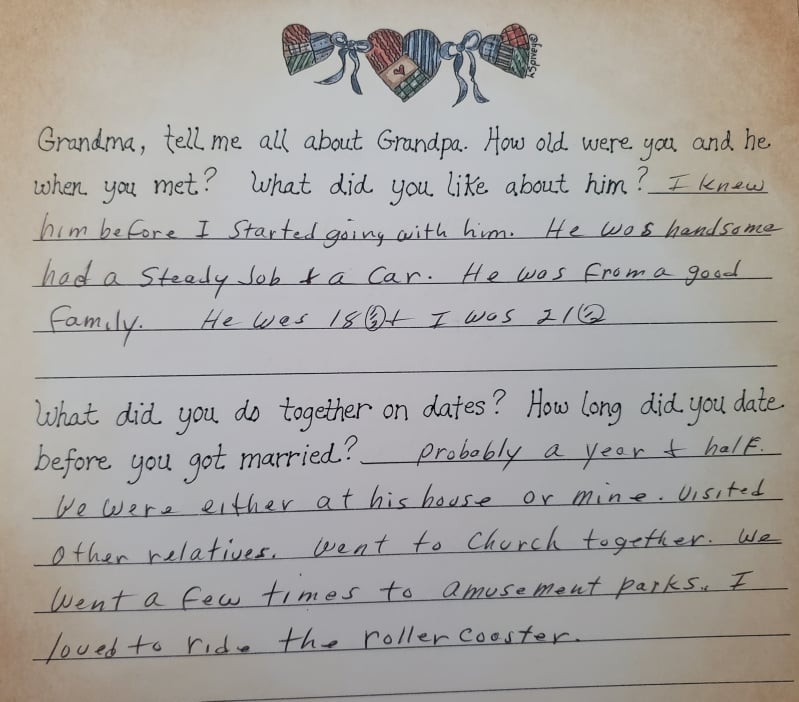 ©LSpivey
Grandma, tell me all about Grandpa. How old were you and he
when you met? What did you like about him? I knew
him before I Started going with him. He was handsome
had a Steady Job & a Car. He was from a good
family. He was 18 ½ + I was 21 ½
What did you do together on dates? How long did you date
before you got married? Probably a year & half.
We were either at his house or mine. Visited
Other relatives. Went to Church together. We
Went a few times to amusement parks. I
loved to ride the roller cooster.